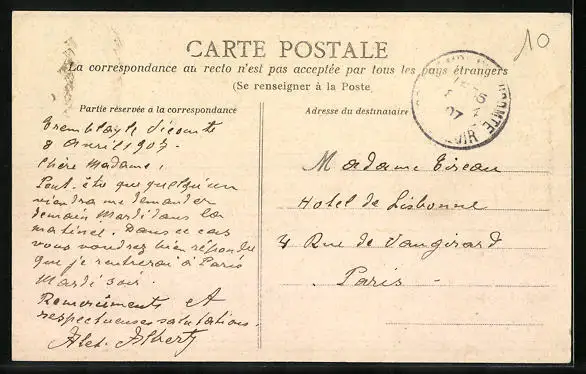 10
CARTE POSTALE
La correspondance au recto n'est pas acceptée par tous les pays étrangers
(Se renseigner à la Poste
Partie réservée à la correspondance
Adresse du destinataire
Tremblay le Vicomte
8 Avril 1907.
Chère Madame,
Peut-être que quelqu'un
viendra me demander
demain Mardi dans la
matinée. Dans ce cas
vous voudrez bien répondre
que je rentrerai à Paris
Mardi soir.
Remerciments et
respectueuses salutations.
Alex. Albert
Madame
Hotel de Lisbonne
4 Rue de Vaugirard
Paris